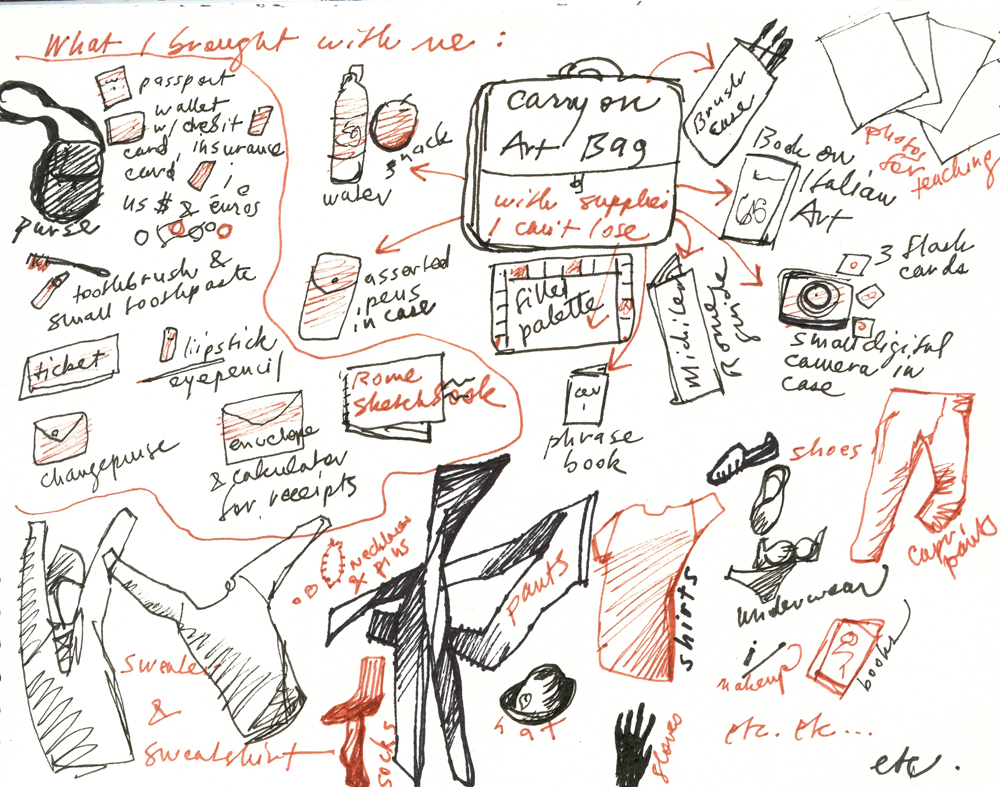 What I brought with me:
purse
passport
wallet
w/ credit
card, insurance
card,
US $ & euros
toothbrush &
small toothpaste
ticket
lipstick
eyepencil
changepurse
envelope
& calculator
for receipts
Rome
Sketchbook
water
snack
Carry on
Art Bag
with supplies
I can't lose
assorted
pens
in case
filled
palette
phrase
book
Rome
guide
Brush
case
photos
for
teaching
Book on
Italian
Art
3 flash
cards
small digital
camera in
case
sweater
&
sweatshirt
necklaces
& pins
socks
pants
hat
shirts
gloves
shoes
underwear
capri
pants
makeup
books
etc. etc...
etc.